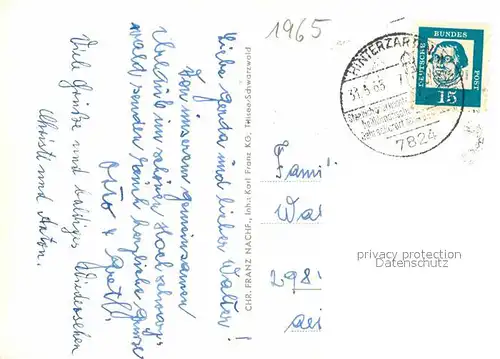 1965
HINTERZARTEN
31.5.65
7824
DEUTSCHE BUNDESPOST
15
Liebe Gerda und lieber Walter!
Von unserem gemeinsamen
Urlaub im schönen Hochschwarz-
wald senden Euch herzliche Grüsse
Otto +
Viele Grüsse und baldiges Wiedersehen
Christl und Anton.
CHR. FRANZ NACHF., Inh.: Karl Franz KG, Titisee/Schwarzwald
Fami
Wal
298
privacy protection
Datenschutz